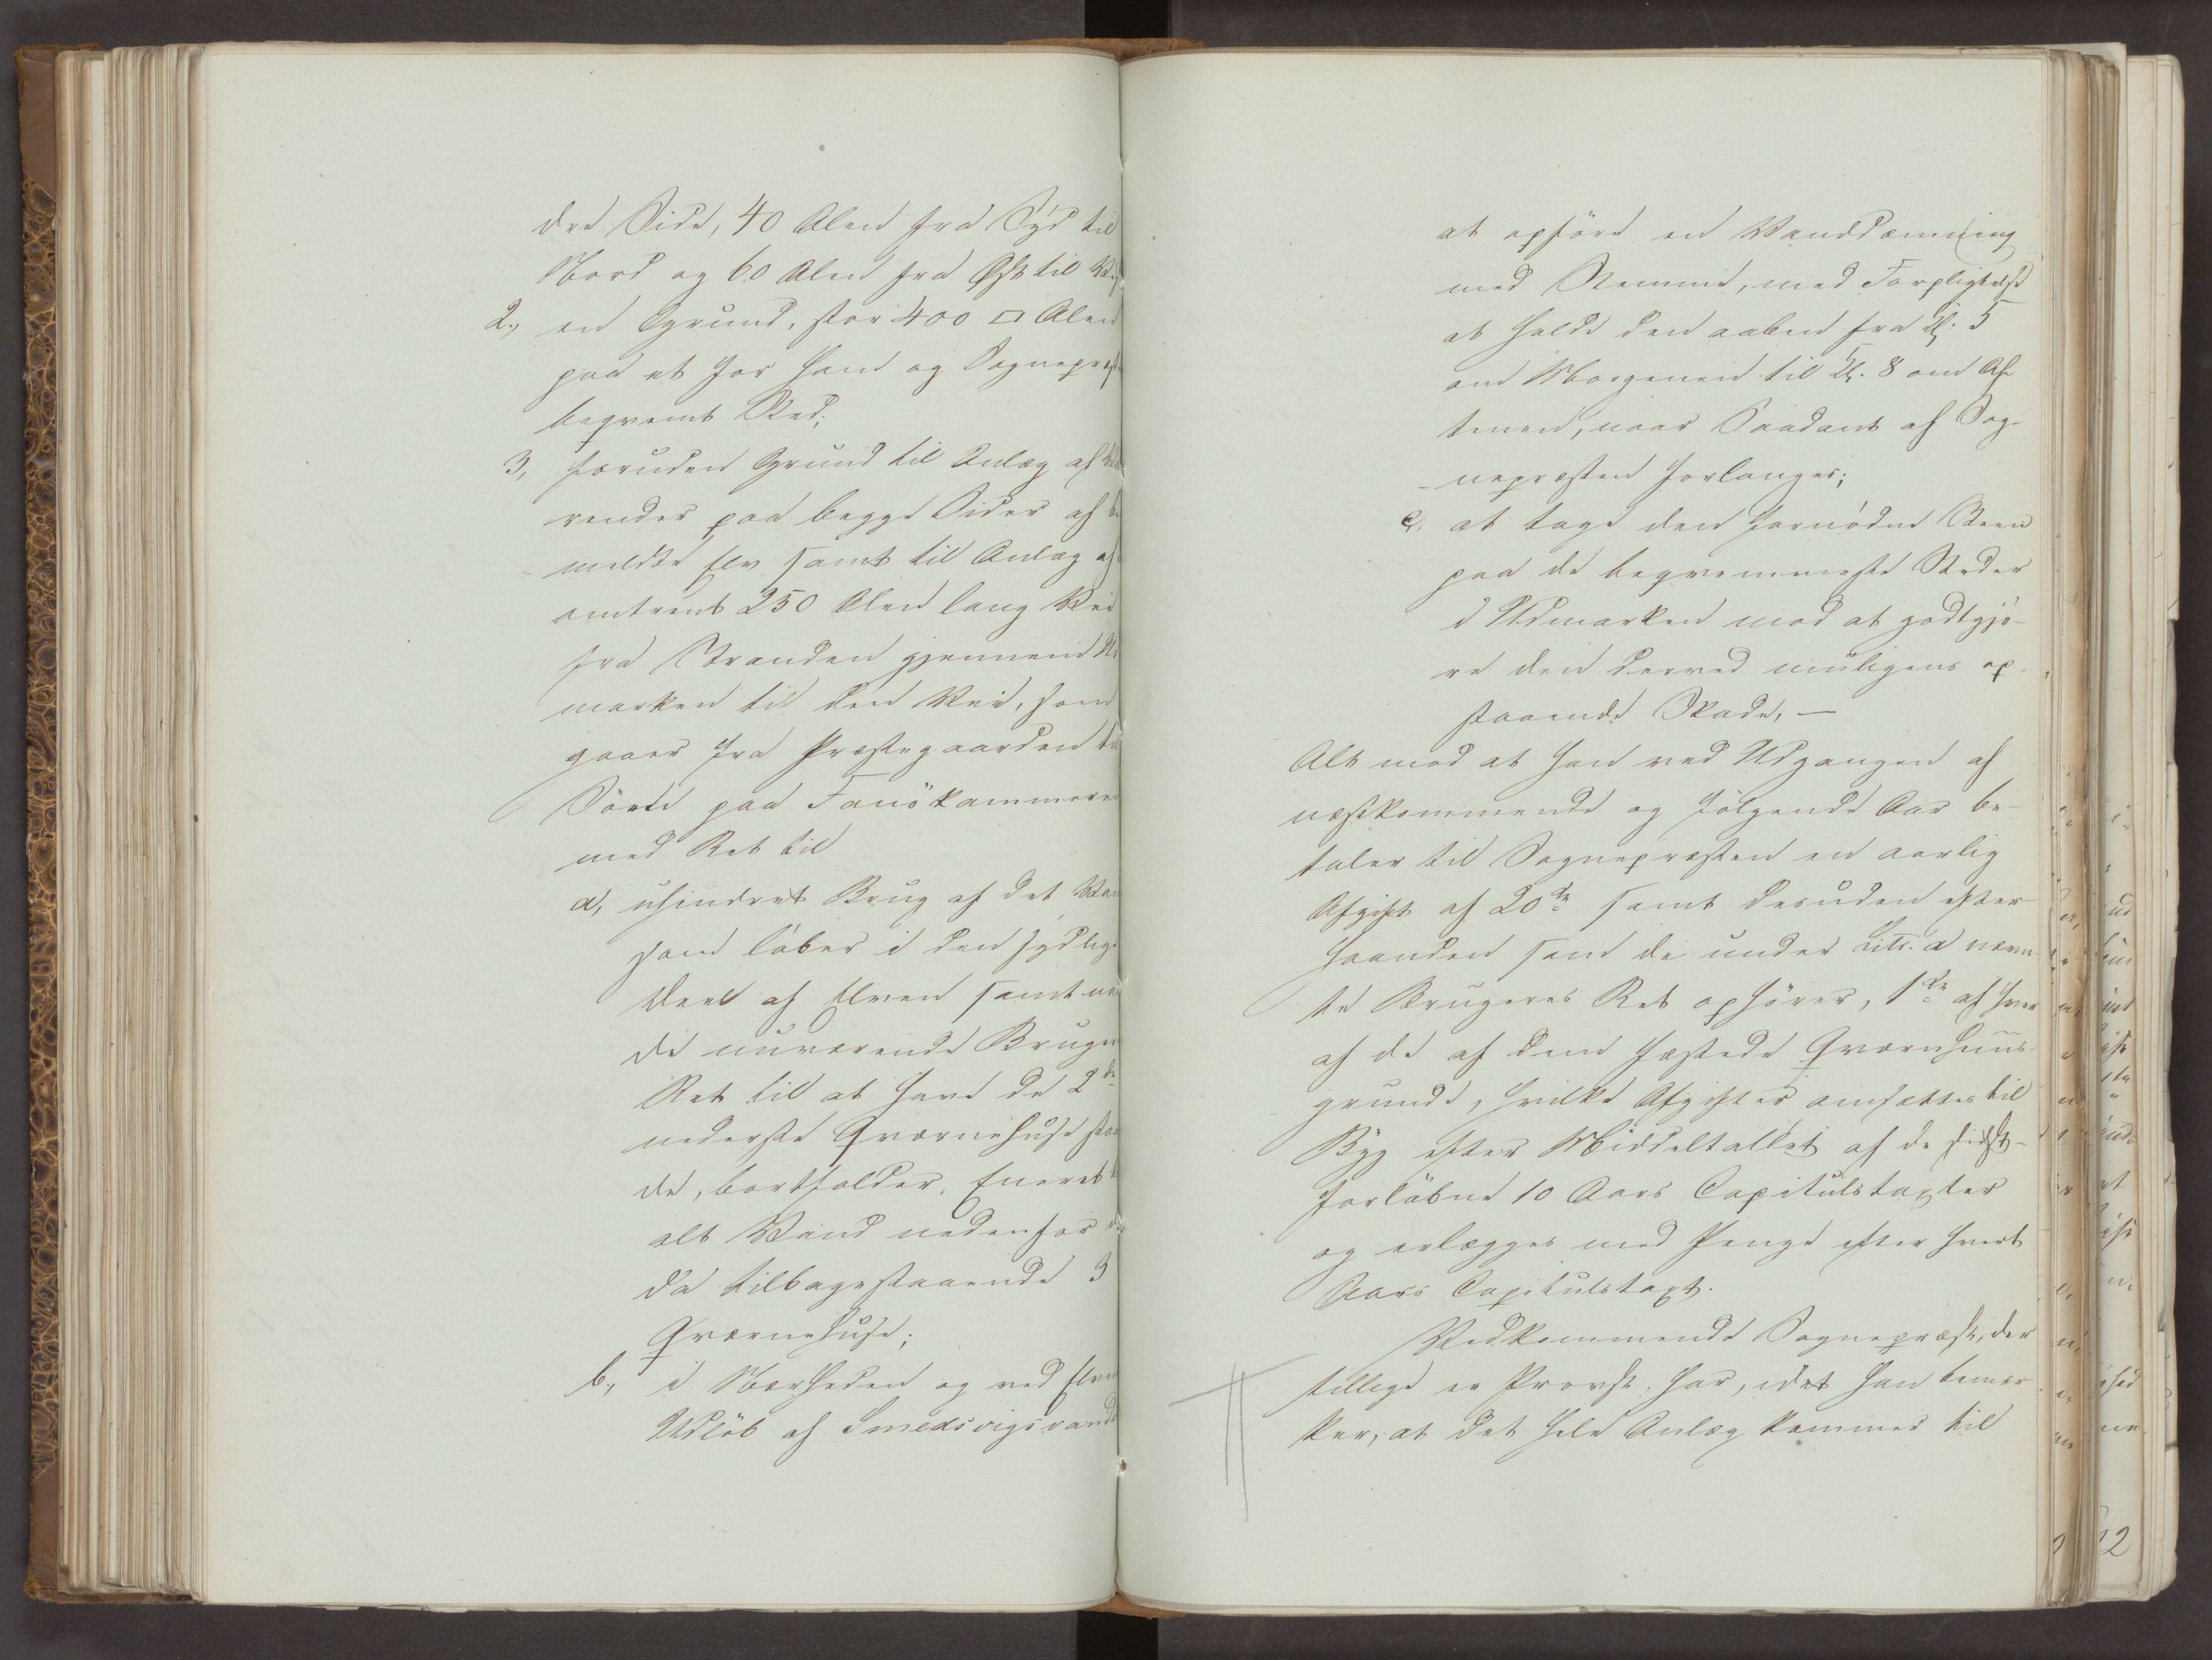 dre Side, 40 Alen fra Syd til
Nord og 60 Alen fra Øst til
2., en Grund, stor 400 □ Alen
paa et for ham og Sognepræst
beqvemt Sted;
3, foruden Grund til Anlæg af
render paa begge Sider af be
meldte Elv samt til Anlæg af
omtrent 250 Alen lang Vei
fra Stranden gjennem
marken til den Vei, som
gaaer fra Præstegaarden til
Sörte paa Fanökammeren
med Ret til
a, uhindret Brug af det
som löber i den sydlige
Deel af Elven samt
de nuværende Bruger
Ret til at have de 2de
nederste Qværnehuse staa
de, bortfalder, Eneret
alt Vand nedenfor
da tilbagestaaende 3
Qværnehuse;
b., i Nærheden og ved Elvens
Udlöb af Smedsvigsvande
at opföre en Vanddæmning
med Stemme, med Forpligtelse
at holde den aaben fra Kl: 5
om Morgenen til Kl. 8 om Af
tenen, naar Saadant af Sog-
nepræsten forlanges;
c, at tage den fornödne Steen
paa de beqvemmeste Steder
i Udmarken mod at godtgjö-
re den derved muligens op-
staaende Skade, —
Alt mod at han ved Udgangen af
næstkommende og fölgende Aar be-
taler til Sognepræsten en aarlig
Afgift af 20 Sp samt desuden efter-
haanden som de under Litr. a nævn-
te Brugeres Ret ophörer, 1 Sp af hver
af de af dem fæstede Qværnhuus-
grunde, hvilke Afgifter omsættes til
Byg efter Middeltallet af de sidst-
forlöbne 10 Aars Capitulstaxter
og erlægges med Penge efter hvert
Aars Capitulstaxt.
Vedkommende Sognepræst, der
tillige er Provst, har, idet han bemær
ker, at det hele Anlæg kommer til